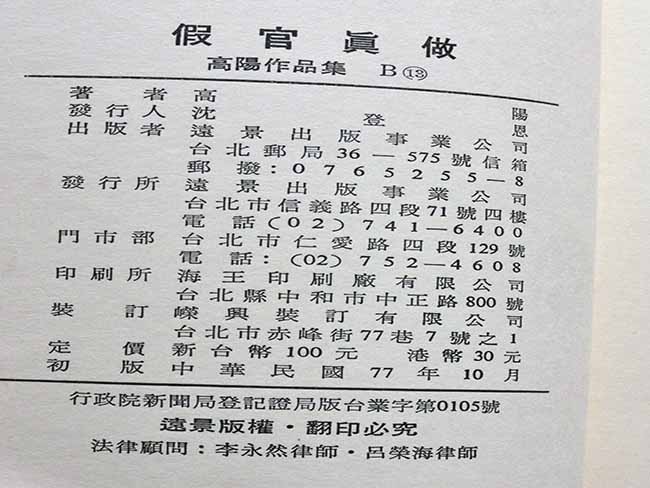 假官眞做
高陽作品集 B⑬
著者 高陽
發行人 沈登恩
出版者 遠景出版事業公司
台北郵局36—575號信箱
郵撥：0765255—8
發行所 遠景出版事業公司
台北市信義路四段71號四樓
電話（02）741—6400
門市部 台北市仁愛路四段129號
電話：（02）752—4608
印刷所 海王印刷廠有限公司
台北縣中和市中正路800號
裝訂 嶸興裝訂有限公司
台北市赤峰街77巷7號之1
定價 新台幣100元 港幣30元
初版 中華民國77年10月
行政院新聞局登記證局版台業字第0105號
遠景版權・翻印必究
法律顧問：李永然律師・呂榮海律師